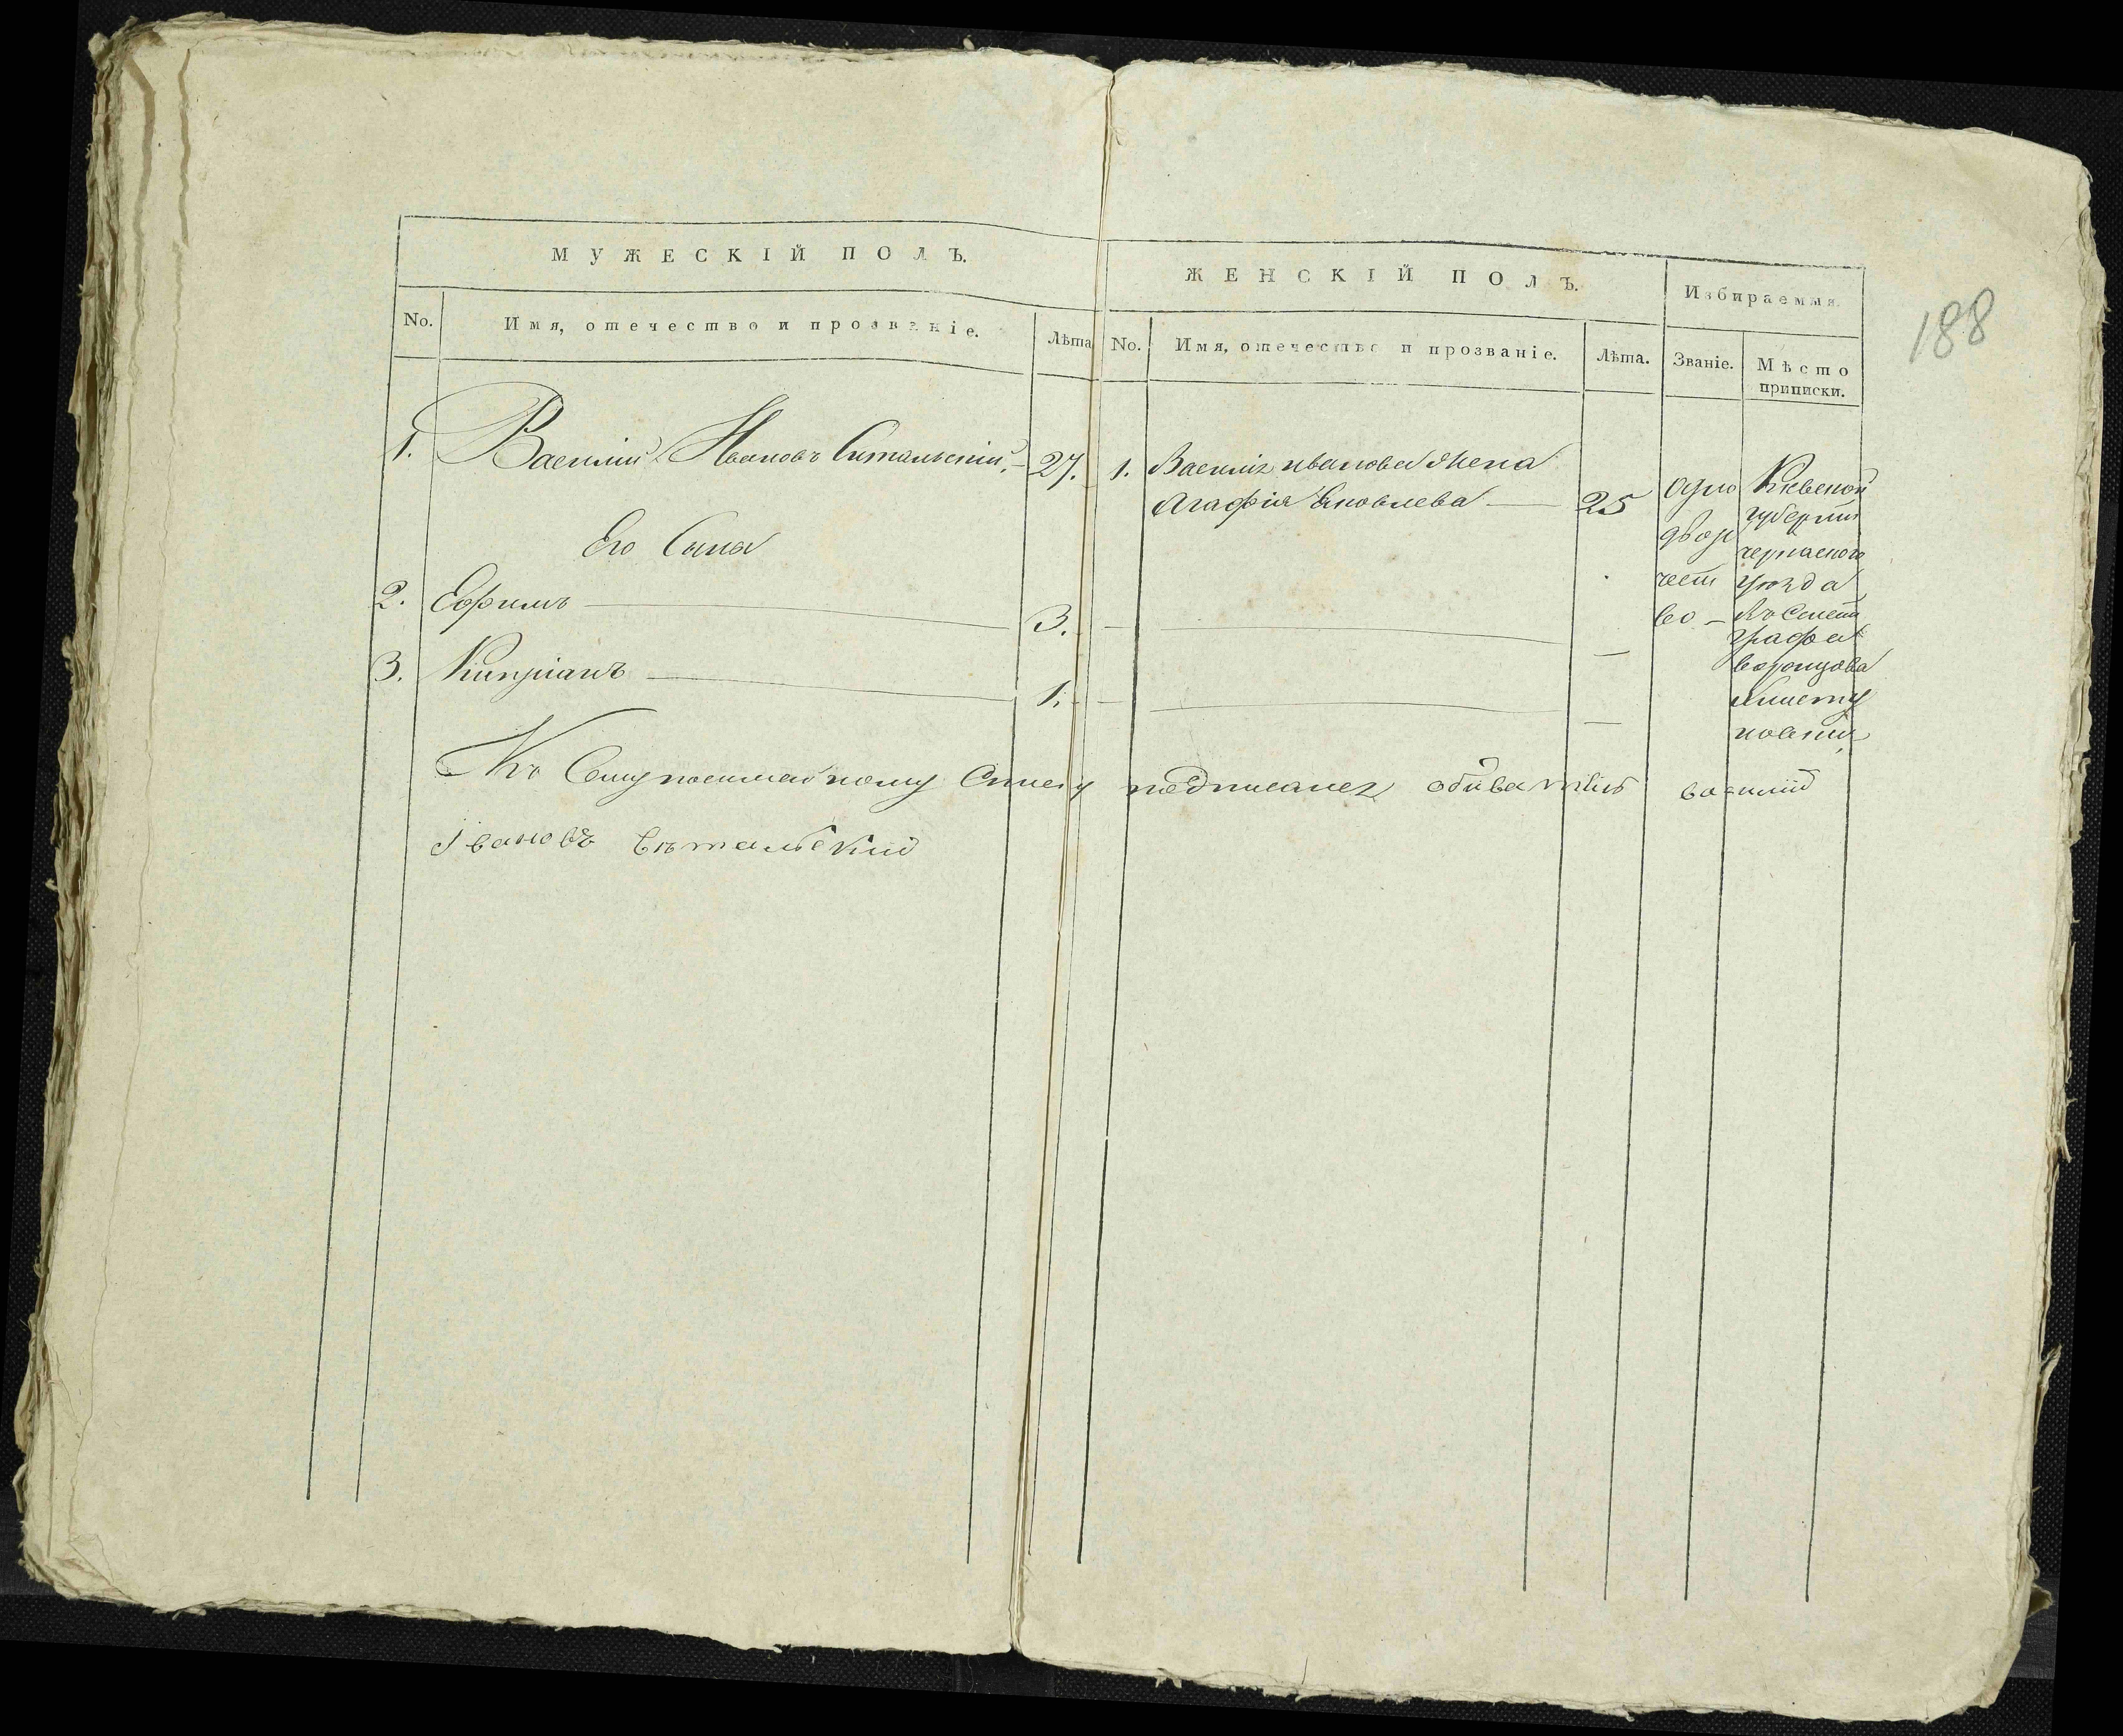 МУЖЕСКІЙ ПОЛЪ.
ЖЕНСКІЙ ПОЛЪ.
Избираемыя
188
No.
Имя, отечество и прозваніе.
Лѣта
No.
Имя, отечество и прозваніе.
Лѣта.
Званіе.
Мѣсто
приписки.
1. Василий Ивановъ 27.
1. Василія иванова жена
Агафія Яковлева 25
одно
двор
чест
во
Киевской
губернии
черкаского
уѣзда
графа
воронцова
Его Сына
2. Ефимъ 3.
3. Кипріанъ 1.
Къ Сему посемейному Списку подписался обиватель василий
Iвановъ